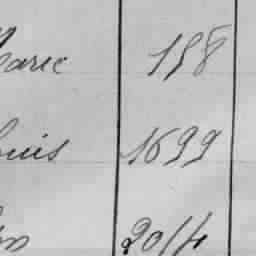 Marie 158
Louis 1699
2014